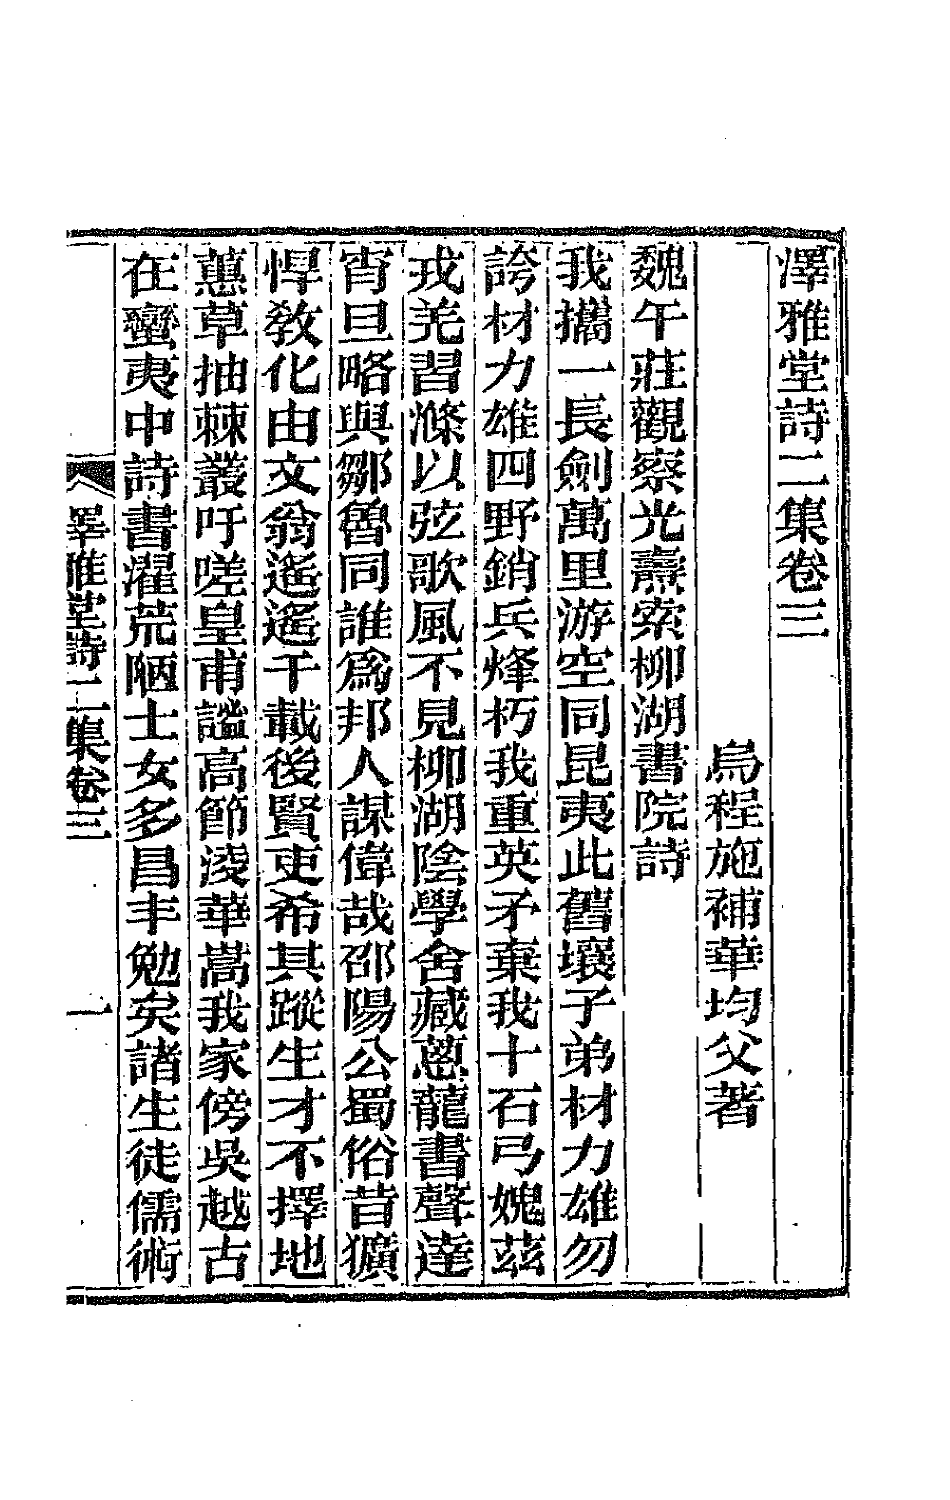 澤雅堂詩二集卷三
烏程施補華均父著
魏午莊觀察光燾索柳湖書院詩
我攜一長劍萬里游空同昆夷此舊壤子弟材力雄勿
誇材力雄四野銷兵烽朽我重英矛棄我十石弓媿茲
戎羌習滌以弦歌風不見柳湖陰學舍藏蔥蘢書聲達
宵旦略與鄒魯同誰為邦人謀偉哉邵陽公蜀俗昔獷
悍教化由文翁遙遙千載後賢吏希其蹤生才不擇地
蕙草抽棘叢吁嗟皇甫謐高節淩華嵩我家傍吳越古
在蠻夷中詩書濯荒陋士女多昌丰勉矣諸生徒儒術
澤雅堂詩二集卷三
一